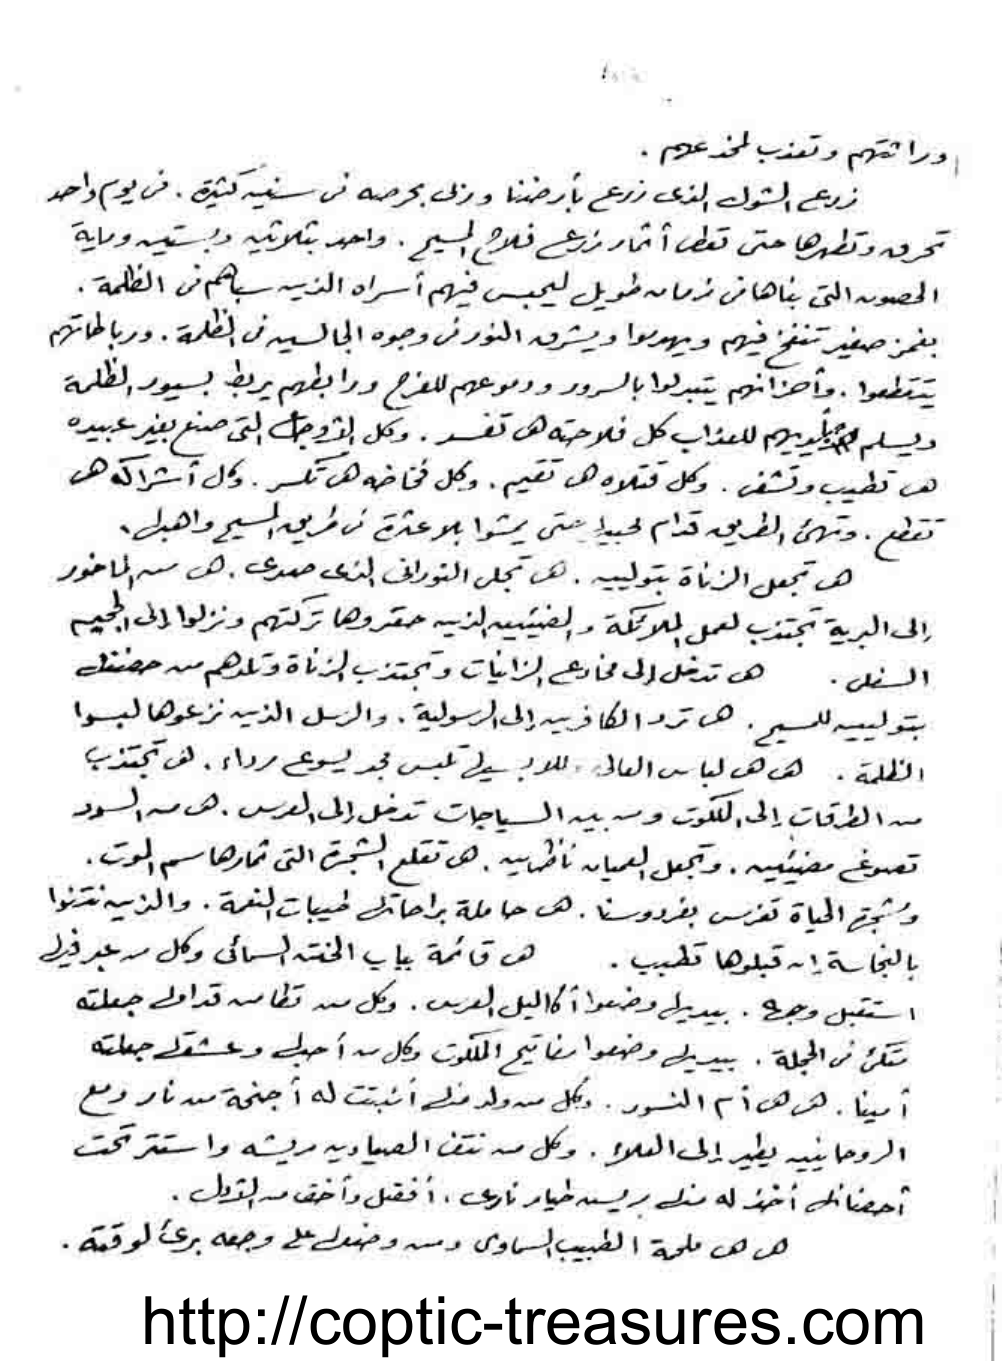 وراثتهم وتعذب لمخدعهم .
زرع الشوك الذى زرع بأرضنا وربى بحرصه فى سنين كثيرة . فى يوم واحد
تحرقه وتطهرها حتى تعطى أثمار زرع فلاح المسيح . واحد بثلاثين وبستين وماية
الحصون التى بناها فى زمان طويل ليحبس فيهم أسراه الذين سباهم فى الظلمة .
بغمز صغير تنفخ فيهم ويهدموا ويشرق النور فى وجوه الجالسين فى الظلمة . ورباطاتهم
يتقطعوا . وأحزانهم يتبدلوا بالسرور ودموعهم للفرح ورابطهم يربط بسيور الظلمة
ويسلم بأيديهم للعذاب كل فلاحته هى تفسد . وكل الأوجاع التى صنع بغير عبيده
هى تطيب وتشفى . وكل قتلاه هى تقيم . وكل فخاخه هى تكسر . وكل أشراكه هى
تقطع . وتهئ الطريق قدام حتى يمشوا بلا عثرة فى طريق المسيح واهبك .
هى تجعل الزناة بتوليين . هى تجلى النورانى الذى صدى . هى من الماخور
إلى البرية تجتذب لعمل الملائكة والمضيئين الذين حقروها تركتهم ونزلوا إلى الجحيم
السفلى . هى تدخل إلى مخادع الزانيات وتجتذب الزناة وتلدهم من حضنك
بتوليين للمسيح . هى ترد الكافرين إلى الرسولية . والرسل الذين نزعوها لبسوا
الظلمة . هى هى لباس العالى تلبس مجد يسوع رداء . هى تجتذب
من الطرقات إلى الملكوت ومن بين السياجات تدخل إلى العرس . هى من السود
تصوغ مضيئين . وتجعل العميان ناظرين . هى تقلع الشجرة التى ثمارها سم الموت .
وشجرة الحياة تغرس بفردوسنا . هى حاملة براحاتك طيبات النعمة . والذين نتنوا
بالنجاسة إن قبلوها تطيب . هى قائمة بباب الختن السمائى وكل من عبر
استقبل وجهه . بيديك وضعوا أكاليل العرس . وكل من تطامن قدامك جعلته
متكئ فى الحجلة . بيديك وضعوا مفاتيح الملكوت وكل من أحبك وعشقك جعلته
أمينا . هى هى أم النسور . وكل من ولد منك أنبتت له أجنحة من نار ومع
الروحانيين يطير إلى العلاء . وكل من نتف الصيادين ريشه واستتر تحت
أحضانك أخذ له منك ريش طيار نارى . أفضل وأخف من الأول .
هى هى ملحمة الطبيب السماوى ومن وضعك على وجعه برئ لوقته .
http://coptic-treasures.com